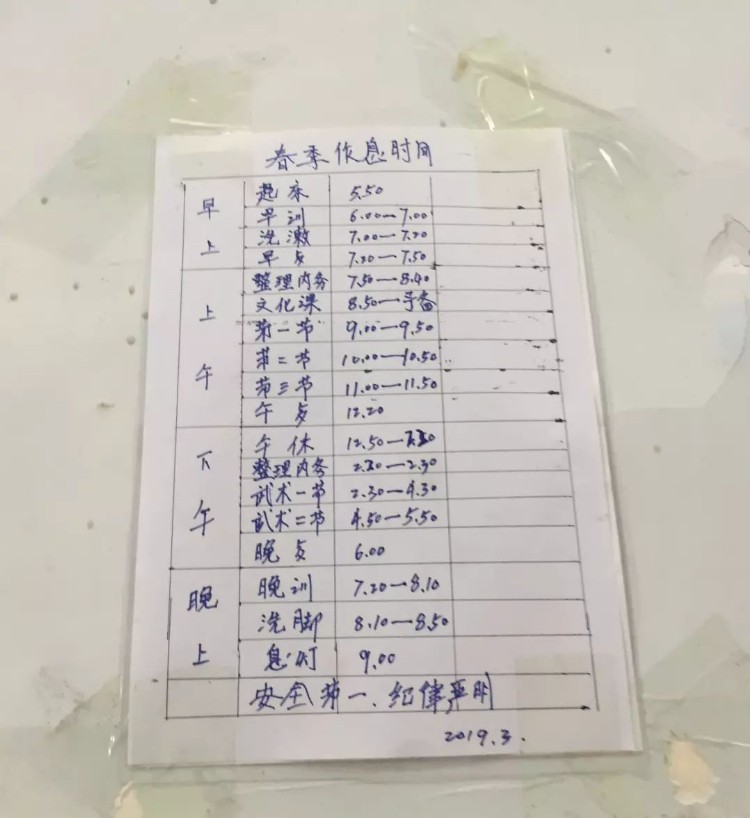 春季作息时间
早上 起床 5.50
早训 6.00—7.00
洗漱 7.00—7.20
早点 7.20—7.50
上午 整理内务 7.50—8.40
文化课 8.50—予备
第一节 9.00—9.50
第二节 10.00—10.50
第三节 11.00—11.50
午点 12.20
下午 午休 12.50—
整理内务 2.20—2.30
武术一节 2.30—4.30
武术二节 4.50—5.50
晚点 6.00
晚上 晚训 7.20—8.10
洗脚 8.10—8.50
息灯 9.00
安全第一、纪律严明
2019.3.